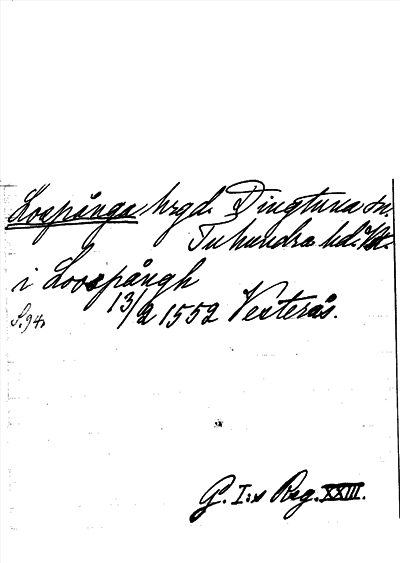 Lospånga hrgd. Dingtuna sn.
Tuhundra hd. Vstm.
i Loospångh
13/2 1552 Vesterås.
S. 94.
G. I:s Reg. XXIII.